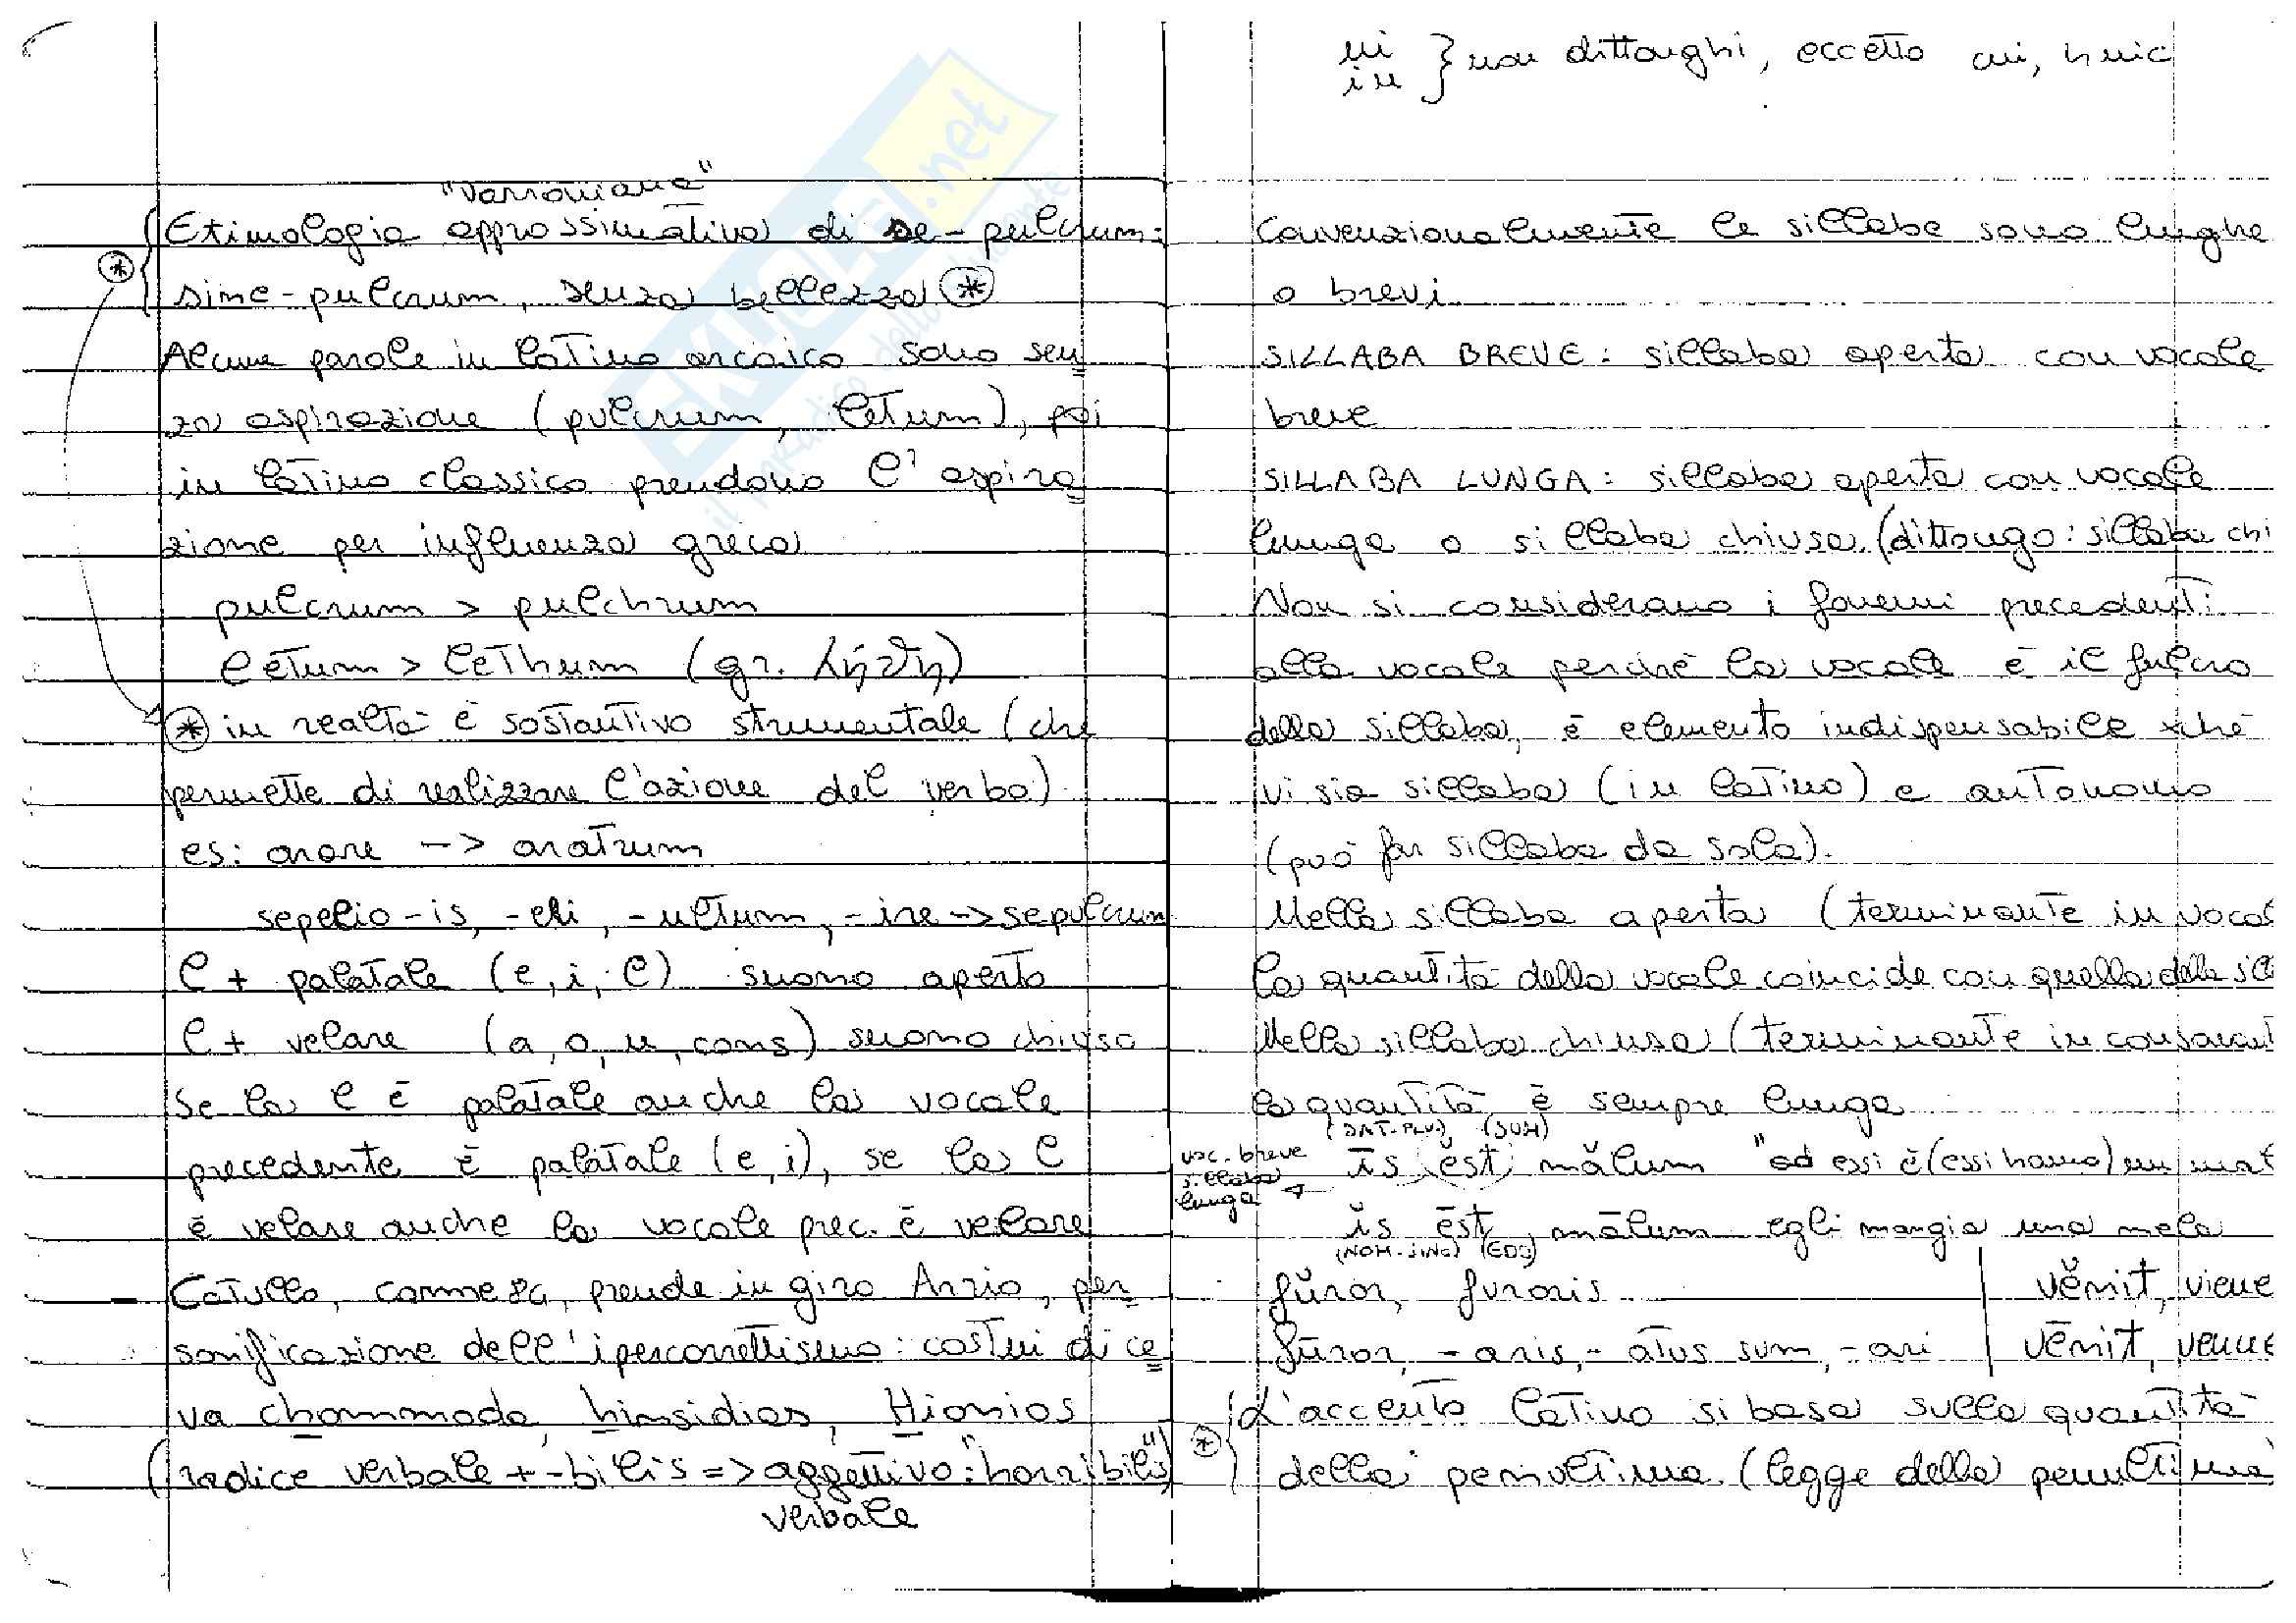 "Varroniana"
Etimologia approssimativa di se-pulcrum:
sine-pulcrum, senza bellezza *
Alcune parole in latino arcaico sono sen
za aspirazione (pulcrum, letum), poi
in latino classico prendono l'aspira
zione per influenza greca
pulcrum > pulchrum
letum > lethum (gr. λήθη)
* in realtà è sostantivo strumentale (che
permette di realizzare l'azione del verbo).
es: arare -> aratrum
sepelio-is, -elii, -ultum, -ire -> sepulcrum
l + palatale (e, i, l) suono aperto
l + velare (a, o, u, cons) suono chiuso
Se la l è palatale anche la vocale
precedente è palatale (e, i), se la l
è velare anche la vocale prec. è velare
- Catullo, carme 84, prende in giro Arrio, per
sonificazione dell'ipercorrettismo: costui dice
va chommoda, hinsidias, Hionios
(radice verbale + -bilis => aggettivo: "horribilis")
verbale
ui
iu } non dittonghi, eccetto cui, huic
Convenzionalmente le sillabe sono lunghe
o brevi
SILLABA BREVE: sillaba aperta con vocale
breve
SILLABA LUNGA: sillaba aperta con vocale
lunga o sillaba chiusa (dittongo: sillaba chi
Non si considerano i fonemi precedenti
alla vocale perché la vocale è il fulcro
della sillaba, è elemento indispensabile xché
vi sia sillaba (in latino) e autonomo
(può far sillaba da sola).
Nella sillaba aperta (terminante in vocal
la quantità della vocale coincide con quella della sill
Nella sillaba chiusa (terminante in consonant
la quantità è sempre lunga
(DAT. PLU) (SUM)
voc. breve
sillaba
lunga
īs ĕst mălum "ad essi è (essi hanno) un mal
ĭs ēst mālum egli mangia una mela
(NOM. SING) (EDO)
fŭror, furoris
vĕnit, viene
fūror, -aris, -atus sum, -ari
vēnit, venne
* L'accento latino si basa sulla quantità
della penultima (legge della penultima
il PARADISO dello studente
SKUOLA.net